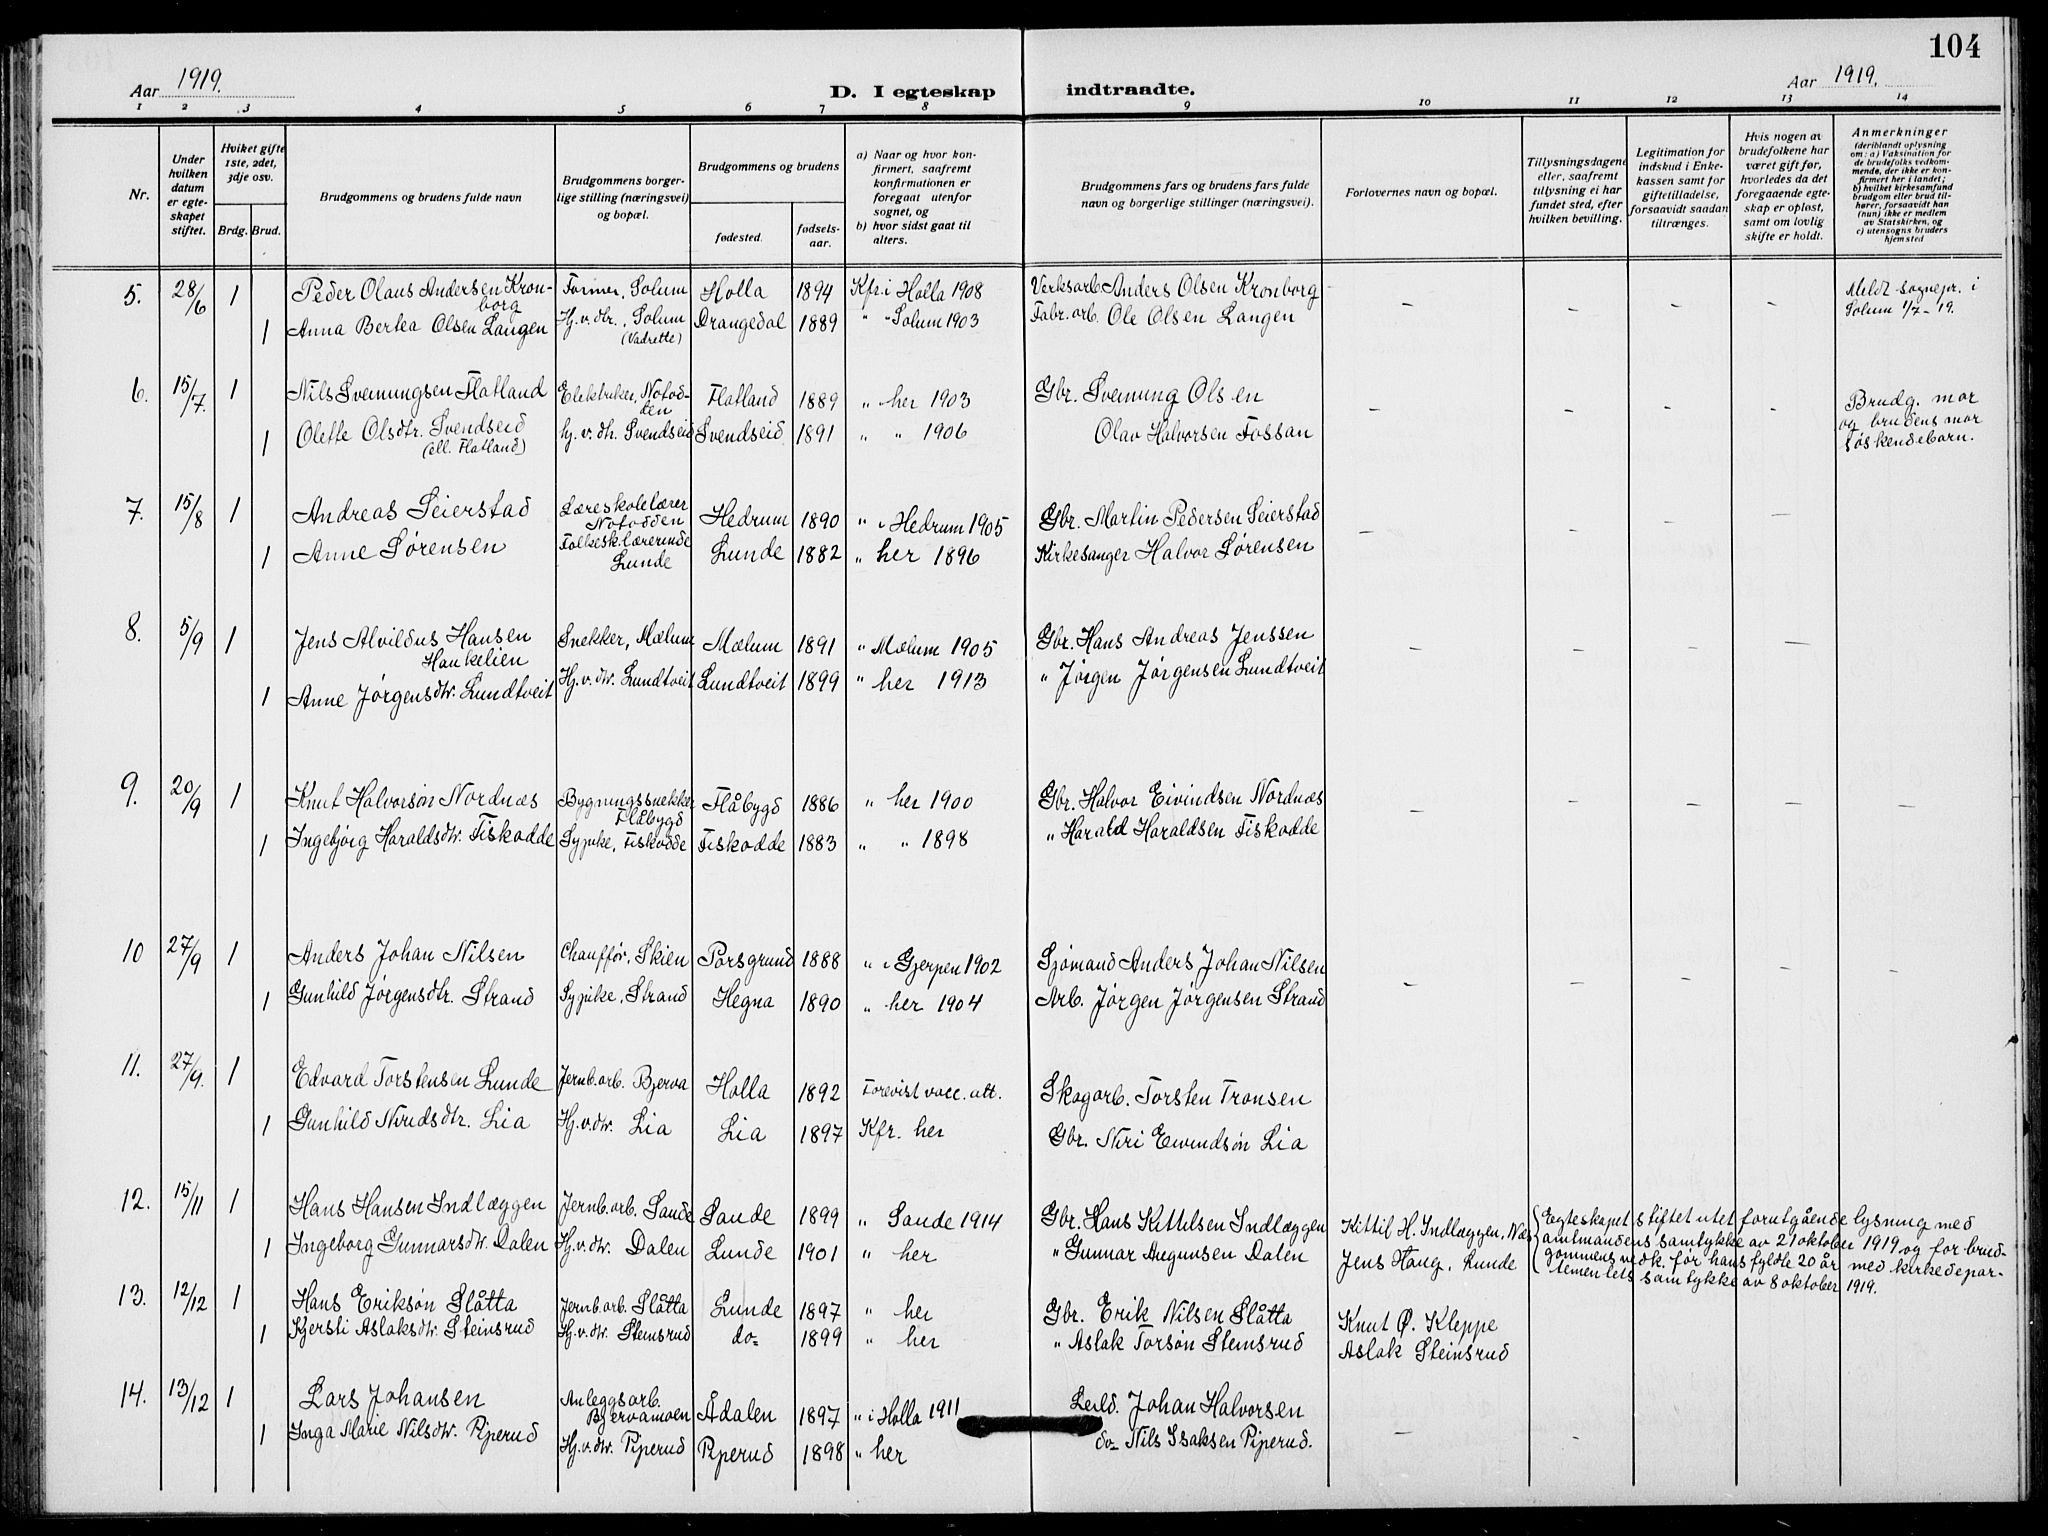 104
Aar 1919.
D. I egteskap indtraadte.
Aar 1919.
1 2 3 4 5 6 7 8 9 10 11 12 13 14
Nr.
Under hvilken datum er egteskapet stiftet.
Hviket gifte 1ste, 2det, 3dje osv.
Brdg. Brud.
Brudgommens og brudens fulde navn
Brudgommens borgerlige stilling (næringsvei) og bopæl.
Brudgommens og brudens
fødested.
fødselsaar.
a) Naar og hvor konfirmert, saafremt konfirmationen er foregaat utenfor sognet, og
b) hvor sidst gaat til alters.
Brudgommens fars og brudens fars fulde navn og borgerlige stillinger (næringsvei).
Forlovernes navn og bopæl.
Tillysningsdagene eller, saafremt tillysning ei har fundet sted, efter hvilken bevilling.
Legitimation for indskud i Enkekassen samt for giftetilladelse, forsaavidt saadan tiltrænges.
Hvis nogen av brudefolkene har været gift før, hvorledes da det foregaaende egteskap er opløst, samt om lovlig skifte er holdt.
Anmerkninger
(deriblandt oplysning om: a) Vaksination for de brudefolks vedkommende, der ikke er konfirmert her i landet;
b) hvilket kirkesamfund brudgom eller brud tilhører, forsaavidt han (hun) ikke er medlem av Statskirken, og
c) utensogns bruders hjemsted
5. 28/6 1 Peder Olaus Andersen Kronborg Former, Solum Holla 1894 Kfr. i Holla 1908 Verksarb. Anders Olsen Kronborg – – – – Meldt sognepr. i Solum 1/7-19.
1 Anna Bertea Olsen Langen Hj. v. dtr., Solum (Vadrette) Drangedal 1889 " " Solum 1903 Fabr. arb. Ole Olsen Langen
6. 15/7. 1 Nils Svenungsen Flatland Elektriker, Notodden Flatland 1889 " her 1903 Gbr. Svenung Olsen – – – – Brudg. mor og brudens mor søskendebarn.
1 Olette Olsdtr. Svendseid (ell. Flatland) hj. v. dtr. Svendseid Svendseid 1891 " " 1906 Olav Halvorsen Fossan
7. 15/8 1 Andreas Seierstad Læreskolelærer Notodden Hedrum 1890 " i Hedrum 1905 Gbr. Martin Pedersen Seierstad – – – –
1 Anne Sørensen Folkesk. lærerinde Lunde Lunde 1882 " her 1896 Kirkesanger Halvor Sørensen
8. 5/9 1 Jens Alvildus Hansen Haukelien Snekker, Mælum Mælum 1891 " Mælum 1905 Gbr. Hans Andreas Jenssen – – – –
1 Anne Jørgensdtr. Lundtveit Hj. v. dtr. Lundtveit Lundtveit 1899 " her 1913 " Jørgen Jørgensen Lundtveit
9. 20/9 1 Knut Halvorsøn Nordnæs Bygningssnekker Flåbygd Flåbygd 1886 " her 1900 Gbr. Halvor Eivindsen Nordnæs – – – – –
1 Ingebjørg Haraldsdtr. Fiskodde Sypike, Fiskodde Fiskodde 1883 " " 1898 " Harald Haraldsen Fiskodde
10 27/9 1 Anders Johan Nilsen Chauffør, Skien Porsgrund 1888 " i Gjerpen 1902 Sjømand Anders Johan Nilsen – – – – –
1 Gunhild Jørgensdtr. Strand Sypike, Strand Hegna 1890 " her 1904 Arb. Jørgen Jørgensen Strand
11. 27/9. 1 Edvard Torstensen Lunde Jernb. arb. Bjerva Holla 1892 Forevist vacc. att. Skogarb. Torsten Tronsen
1 Gunhild Nirudsdtr. Lia Hj. v. dtr. Lia Lia 1897 Kfr. her Gbr. Niri Eivindsøn Lia
12. 15/11 1 Hans Hansen Indlæggen Jernb. arb. Sande Sande 1899 " Sande 1914 Gbr. Hans Kittilsen Indlæggen Kittil H. Indlæggen, Næs
1 Ingeborg Gunnarsdtr. Dalen Hj. v. dtr. Dalen Lunde 1901 " her " Gunnar Augunsen Dalen Jens Haug, Lunde
Egteskapet stiftet utet forutgående lysning med
amtmandens samtykke av 21 oktober 1919 og for brud-
gommens vedk. før hans fyldte 20 år med kirkedepar-
tementets samtykke av 8 oktober 1919.
13. 12/12 1 Hans Eriksøn Slåtta Jernb. arb. Slåtta Lunde 1897 " her Gbr. Erik Nilsen Slåtta Knut Ø. Kleppe
1 Kjersti Aslaksdtr. Steinsrud Hj. v. dtr. Steinsrud do- 1899 " her " Aslak Torsøn Steinsrud Aslak Steinsrud
14. 13/12 1 Lars Johansen Anleggsarb. Bjervamoen Ådalen 1897 " i Holla 1911 Leild. Johan Halvorsen – –
1 Inga Marie Nilsdtr. Piperud Hj. v. dtr. Piperud Piperud 1898 " her do- Nils Isaksen Piperud.